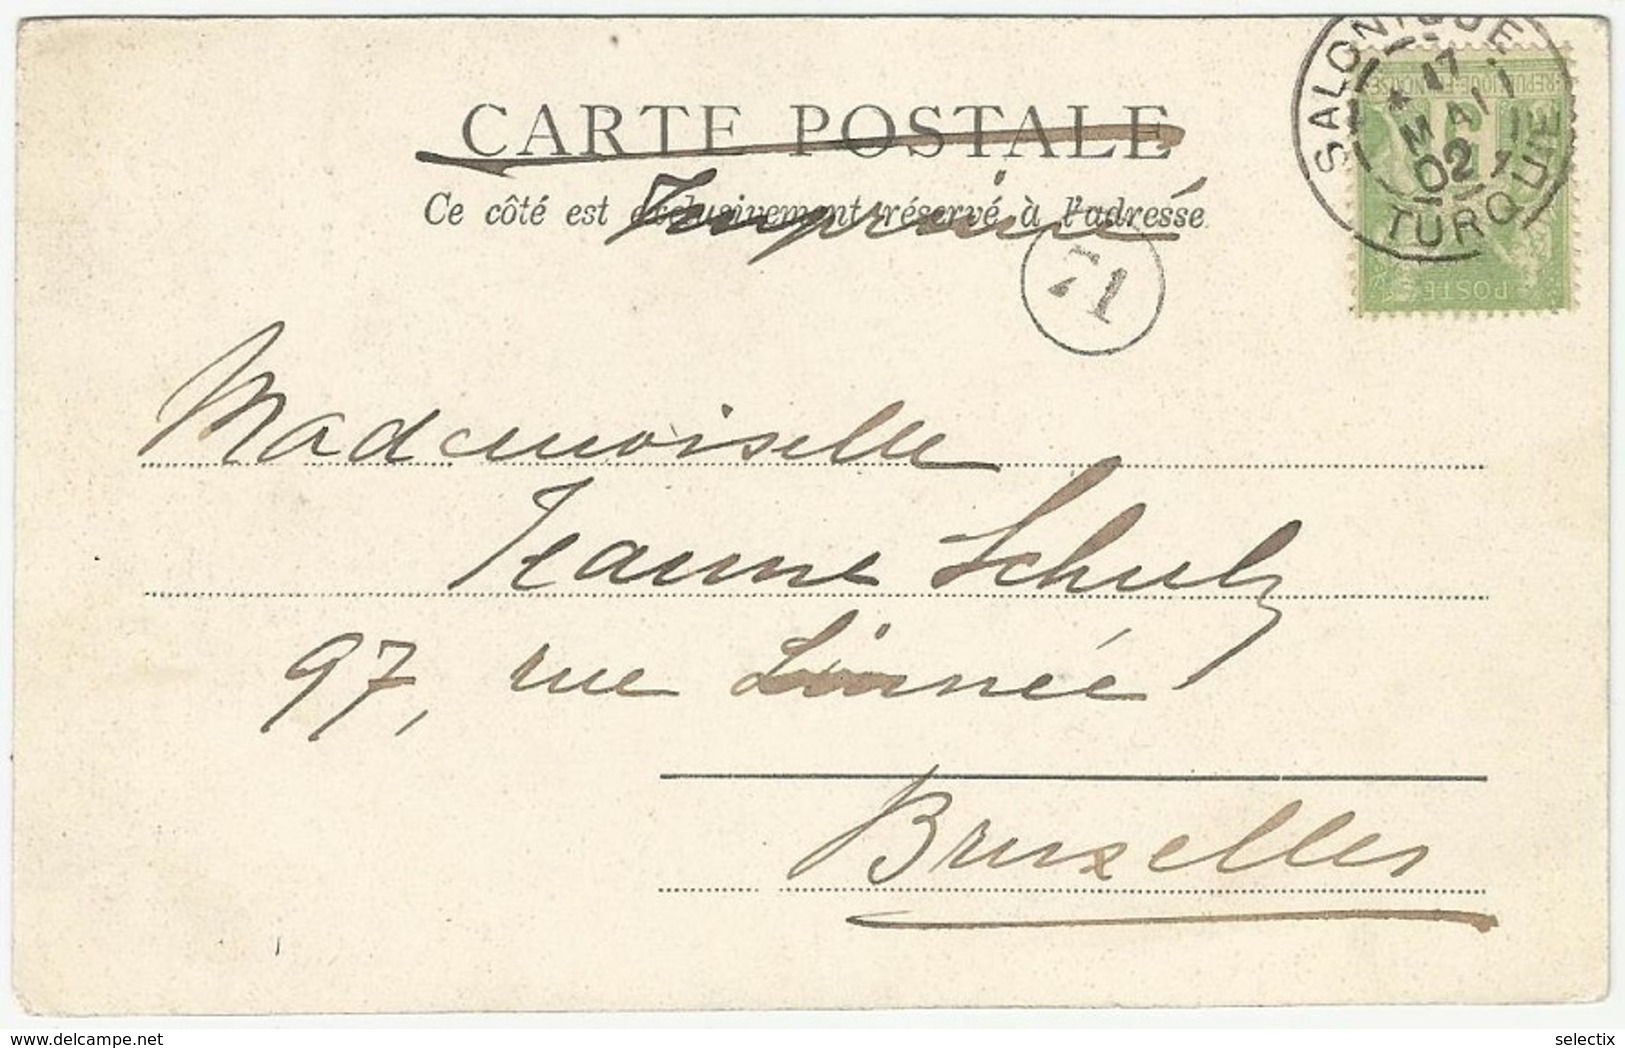 CARTE POSTALE
Ce côté est exclusivement réservé à l'adresse
Imprimé
SALONIQUE
17
MAI
02
TURQUIE
REPUBLIQUE FRANÇAISE
POSTE
71
Mademoiselle
Jeanne Schulz
97, rue Linnée
Bruxelles
delcampe.net
selectix